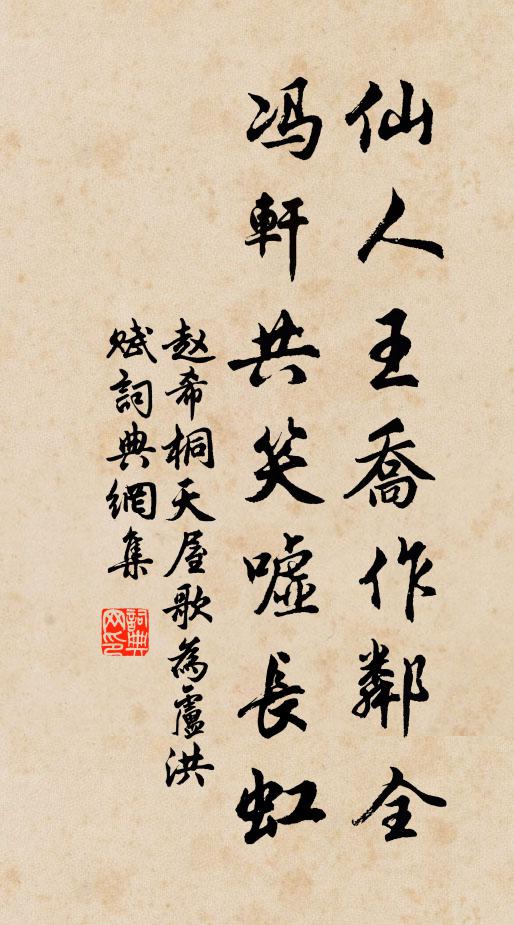 仙人王喬作鄰全
冯軒共笑嘘長虹
赵希桐天屋歌為盧洪
赋詞典網集
詞典
网印